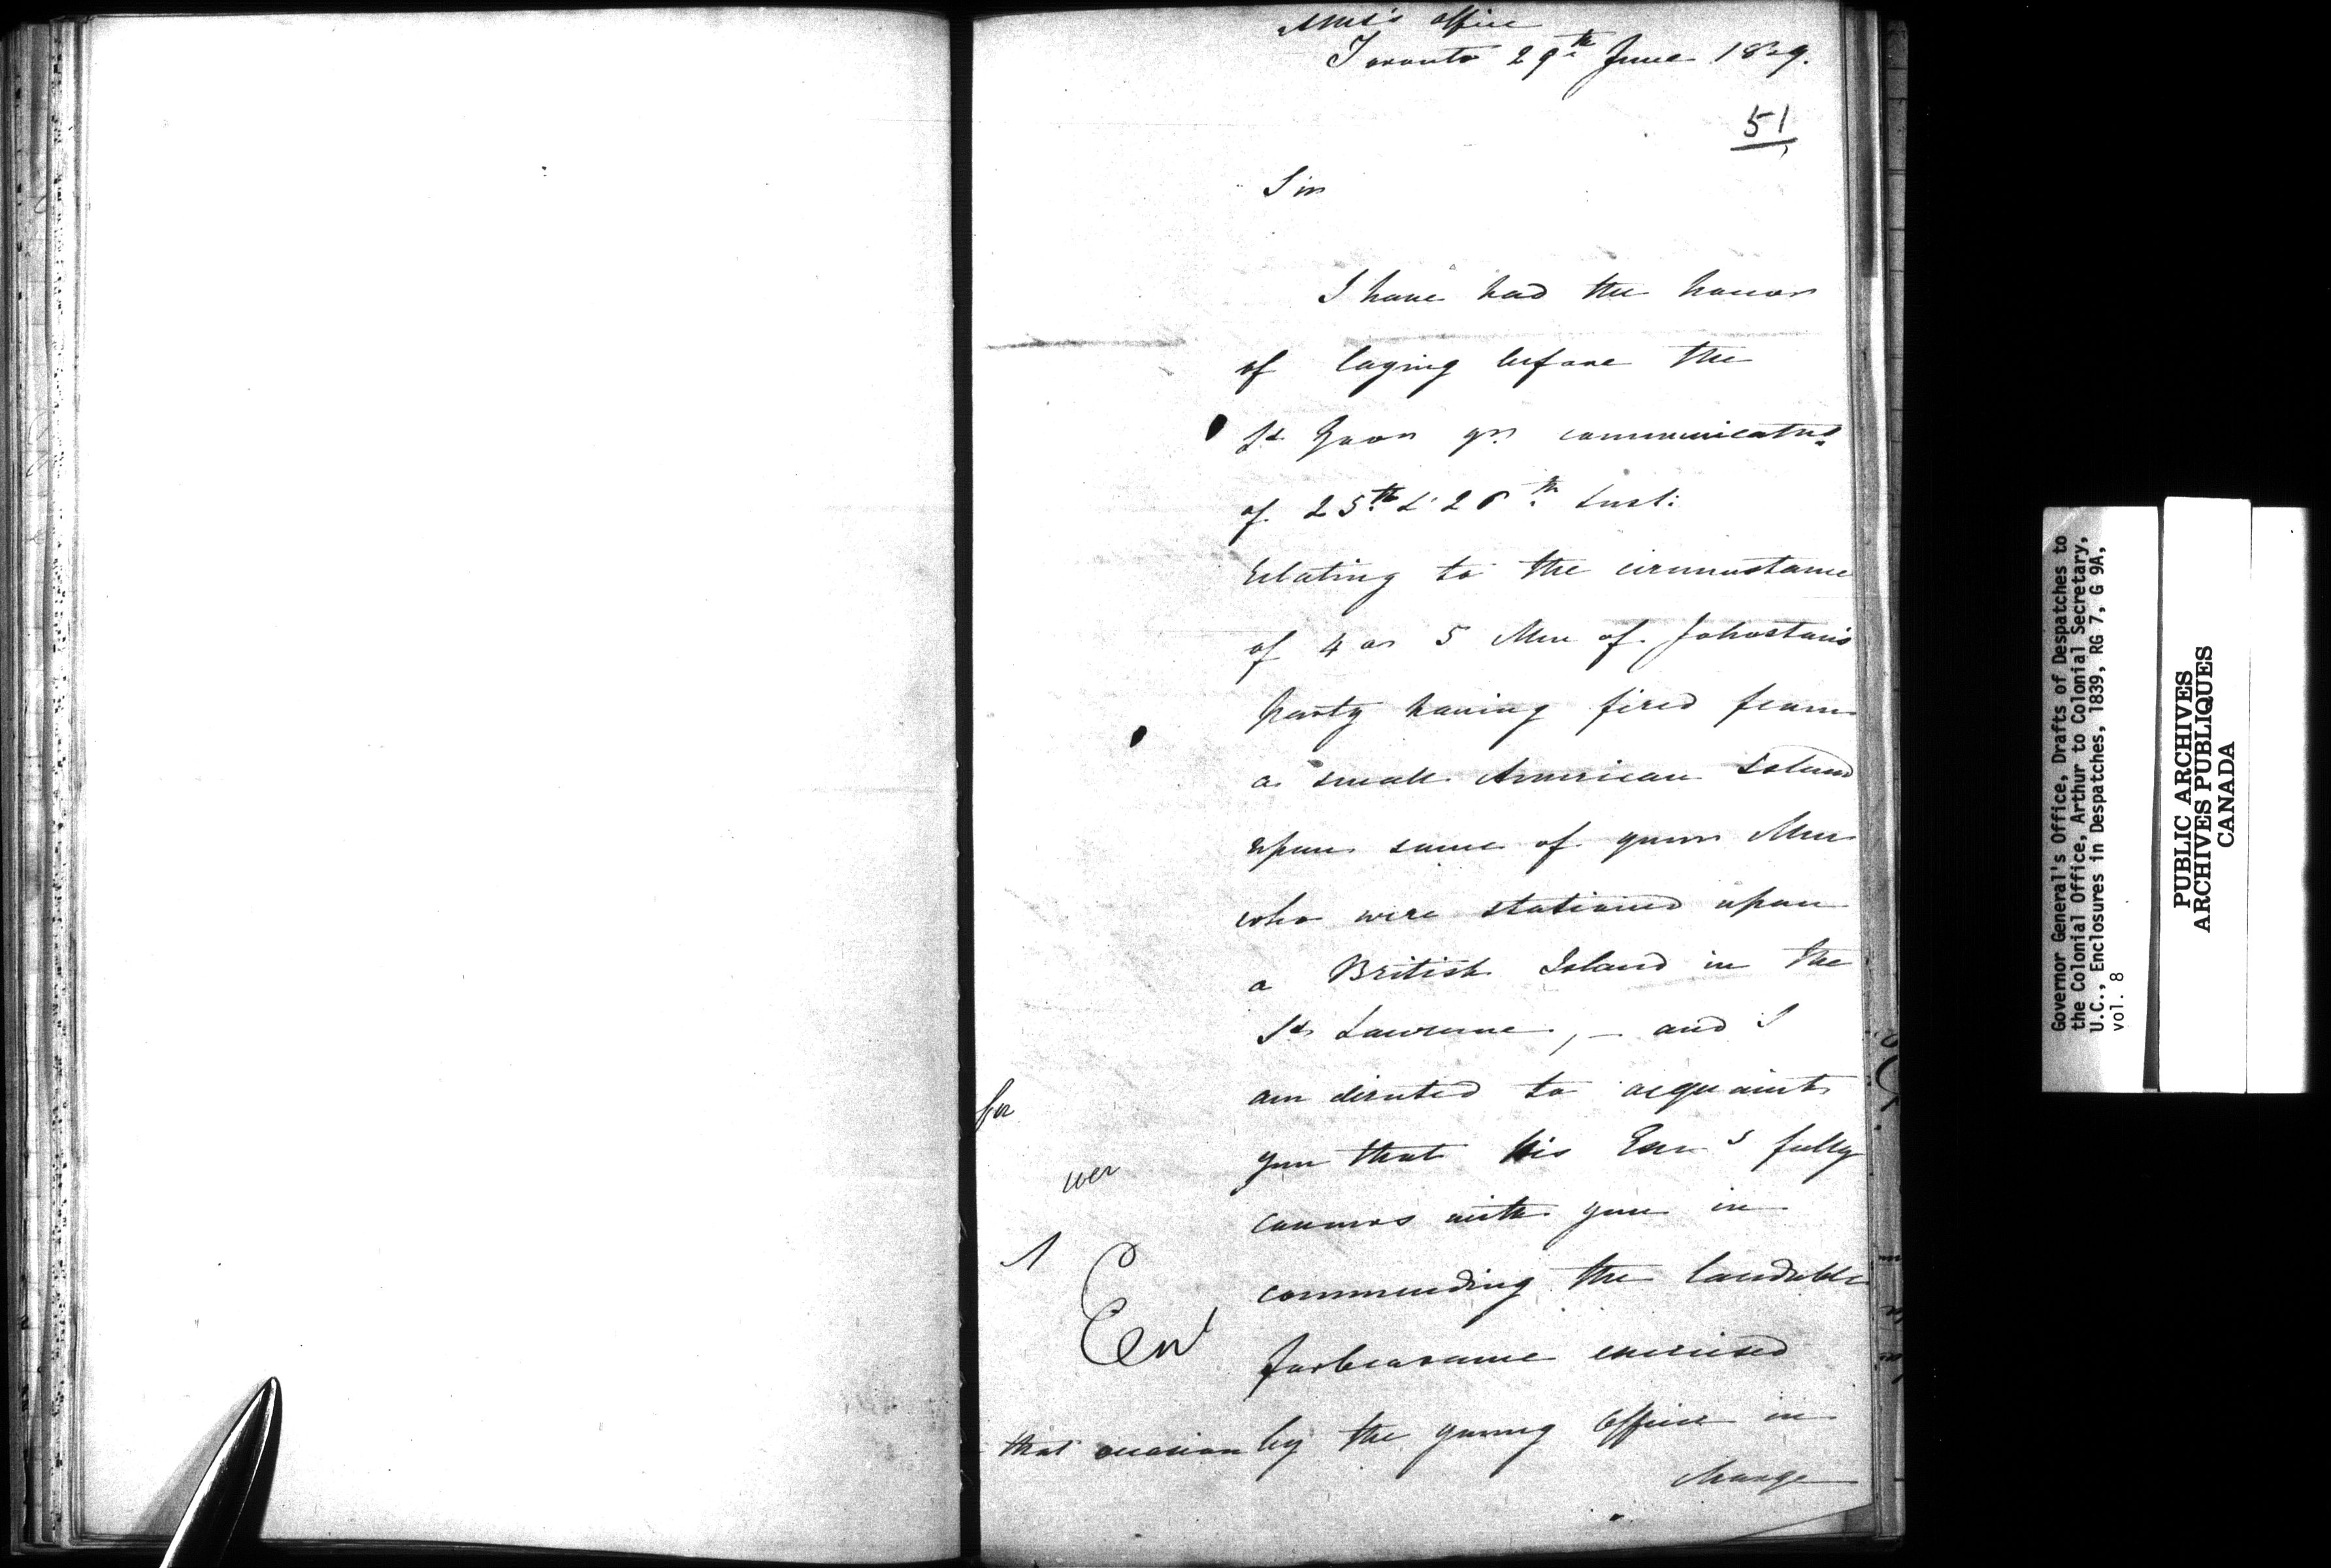 office
Toronto 29th June 1839.
51
Sir
I have had the honor
of laying before the
Lt Govr yr communicatns
of 25th & 26th Inst:
relating to the circumstance
of 4 or 5 Men of Johnston's
party having fired from
a small American Island
upon some of your Men
who were stationed upon
a British Island in the
St Lawrence, – and I
am directed to acquaint
you that His fully
concurs with you in
commending the laudable
forbearance exercised
that occasion by the young Officer in
charge
Governor General's Office, Drafts of Despatches to
the Colonial Office, Arthur to Colonial Secretary,
U.C., Enclosures in Despatches, 1839, RG 7, G 9A,
vol. 8
PUBLIC ARCHIVES
ARCHIVES PUBLIQUES
CANADA